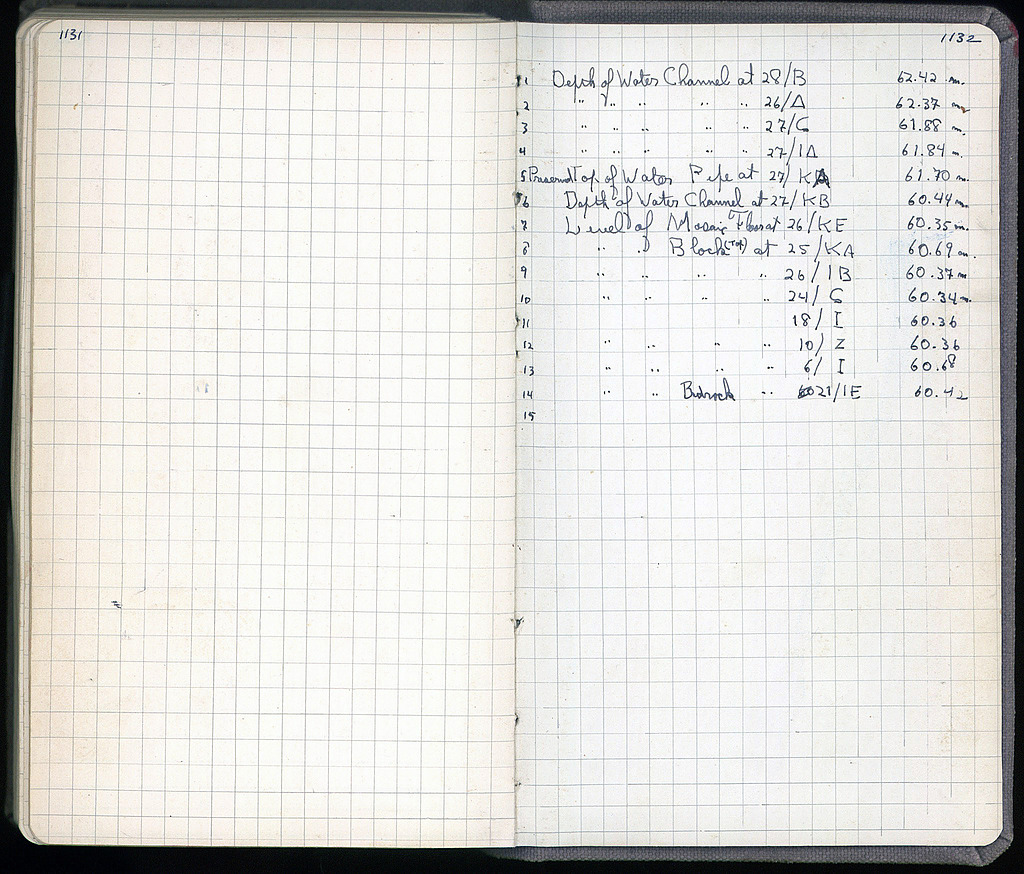 1131
1132
1 Depth of Water Channel at 28/B 62.42 m.
2 " " " " " 26/Δ 62.37 m
3 " " " " " 27/Ϛ 61.88 m.
4 " " " " " 27/ΙΔ 61.84 m.
5 Preserved Top of Water Pipe at 27/ΚΑ 61.70 m.
6 Depth of Water Channel at 27/ΚΒ 60.44 m.
7 Level of Mosaic Floor at 26/ΚΕ 60.35 m.
8 " " Block (Top) at 25/ΚΑ 60.69 m.
9 " " " " 26/ΙΒ 60.37 m
10 " " " " 24/Ϛ 60.34 m.
11 18/Ι 60.36
12 " " " " 10/Ζ 60.36
13 " " " " 6/Ι 60.68
14 " " Bedrock " 21/ΙΕ 60.42
15